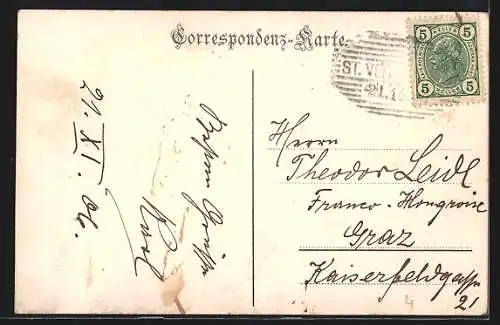 Correspondenz-Karte.
5 HELLER 5
5 HELLER 5
ST. V
21.11
21. XI. 06.
Besten Gruss
Karl
Herrn
Theodor Leidl
Franco-Hongroise
Graz
Kaiserfeldgasse
21
4